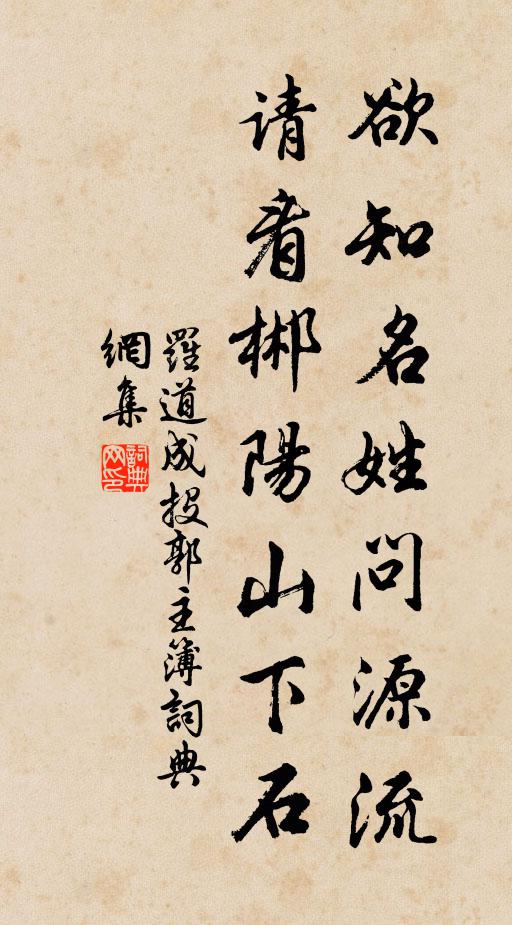 欲知名姓问源流
请看郴陽山下石
羅道成投郭主簿詞典
網集
詞典
网印